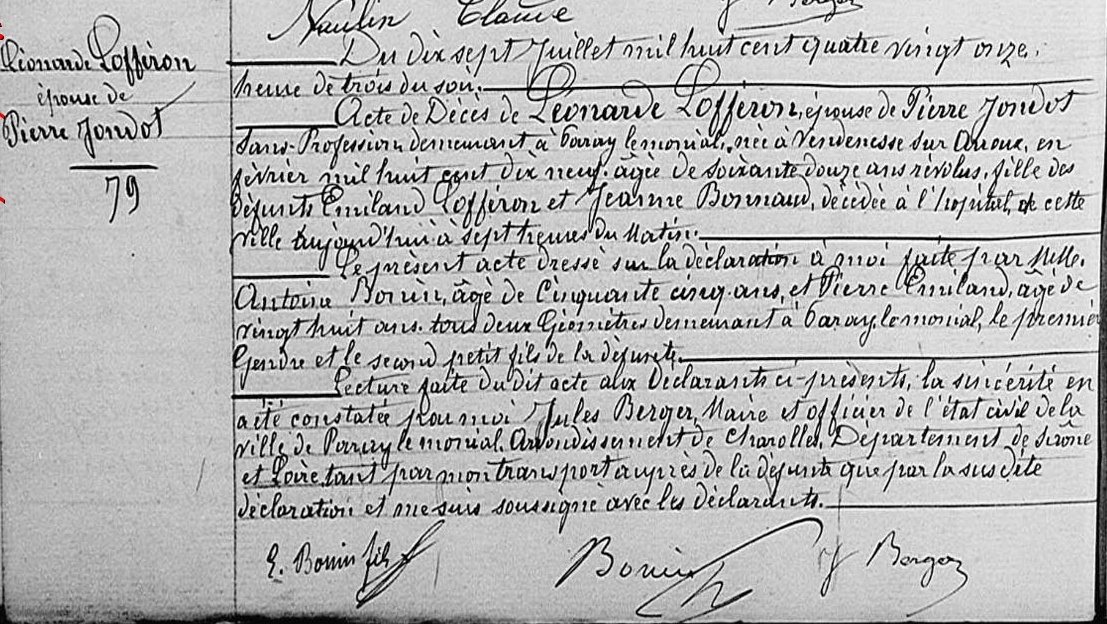 Naulin Claude J Berger
Léonarde Lofféron
épouse de
Pierre Jondot
79
Du dix sept Juillet mil huit cent quatre vingt onze,
heure de trois du soir.
Acte de Décès de Léonarde Lofféron, épouse de Pierre Jondot
Sans-Profession demeurant à Paray le monial, née à Vendenesse sur Arroux, en
février mil huit cent dix neuf, âgée de soixante douze ans révolus, fille des
défunts Emiland Lofféron et Jeanne Bonnaud, décédée à l'hopital, de cette
ville aujourd'hui à sept heures du Matin.
Le présent acte dressé sur la déclaration à moi faite par MM.
Antoine Bonin, âgé de Cinquante cinq ans, et Pierre Emiland, âgé de
vingt huit ans, tous deux Géomètres demeurant à Paray le monial, le premier
Gendre et le second petit fils de la défunte.
Lecture faite du dit acte aux Déclarants ci-présents, la sincérité en
a été constatée par moi Jules Berger, Maire et officier de l'état civil de la
ville de Paray le monial, Arrondissement de Charolles, Département de Saône
et Loire, tant par mon transport auprès de la défunte que par la sus dite
déclaration et me suis soussigné avec les déclarants.
E. Bonin fils Bonin J Berger